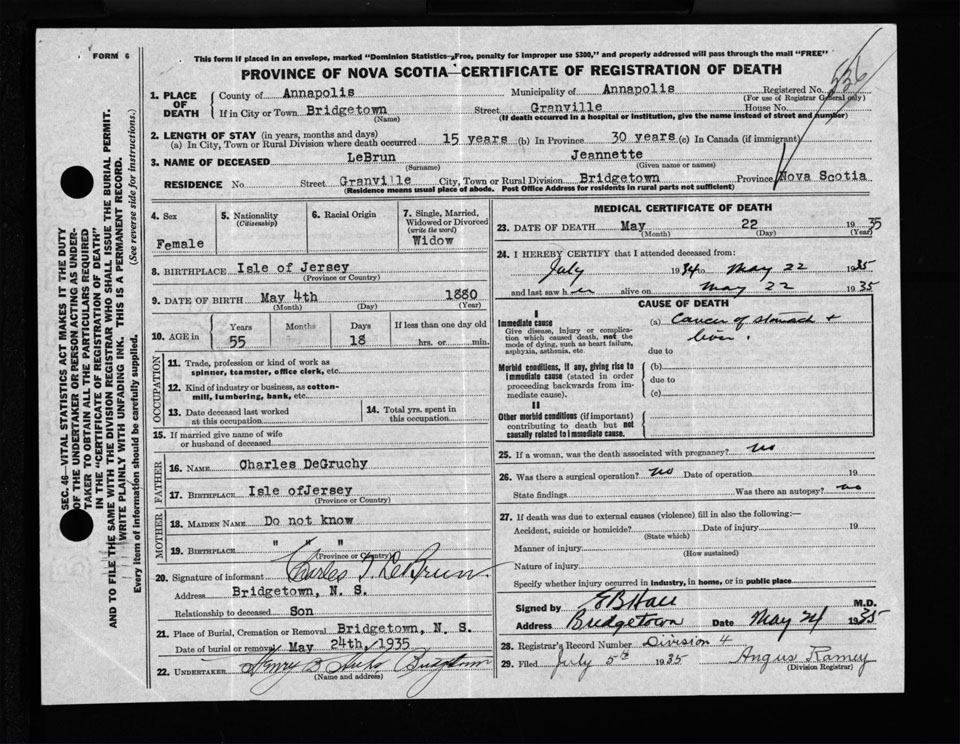 FORM 6
This form if placed in an envelope, marked "Dominion Statistics—Free, penalty for improper use $300," and properly addressed will pass through the mail "FREE"
PROVINCE OF NOVA SCOTIA—CERTIFICATE OF REGISTRATION OF DEATH
536
1. PLACE OF DEATH
County of Annapolis Municipality of Annapolis Registered No.
(For use of Registrar General only)
If in City or Town Bridgetown Street Granville House No.
(Name) (If death occurred in a hospital or institution, give the name instead of street and number)
2. LENGTH OF STAY (in years, months and days)
(a) In City, Town or Rural Division where death occurred 15 years (b) In Province 30 years (c) In Canada (if immigrant)
3. NAME OF DECEASED LeBrun Jeannette
(Surname) (Given name or names)
RESIDENCE No. Street Granville City, Town or Rural Division Bridgetown Province Nova Scotia
(Residence means usual place of abode. Post Office Address for residents in rural parts not sufficient)
4. Sex
Female
5. Nationality
(Citizenship)
6. Racial Origin
7. Single, Married, Widowed or Divorced
(write the word)
Widow
8. BIRTHPLACE Isle of Jersey
(Province or Country)
9. DATE OF BIRTH May 4th 1880
(Month) (Day) (Year)
10. AGE in Years Months Days If less than one day old
55 18 hrs. or min.
OCCUPATION
11. Trade, profession or kind of work as
spinner, teamster, office clerk, etc.
12. Kind of industry or business, as cotton-
mill, lumbering, bank, etc.
13. Date deceased last worked
at this occupation
14. Total yrs. spent in
this occupation
15. If married give name of wife
or husband of deceased
FATHER
16. NAME Charles DeGruchy
17. BIRTHPLACE Isle ofJersey
(Province or Country)
MOTHER
18. MAIDEN NAME Do not know
19. BIRTHPLACE " " "
(Province or Country)
20. Signature of informant Charles T. LeBrun.
Address Bridgetown, N. S.
Relationship to deceased Son
21. Place of Burial, Cremation or Removal Bridgetown, N. S.
Date of burial or removal May 24th, 1935
22. UNDERTAKER Henry B Hicks Bridgetown
(Name and address)
MEDICAL CERTIFICATE OF DEATH
23. DATE OF DEATH May 22 1935
(Month) (Day) (Year)
24. I HEREBY CERTIFY that I attended deceased from:
July 1934 to May 22 1935
and last saw h er alive on May 22 1935
CAUSE OF DEATH
I
Immediate cause
Give disease, injury or complica-
tion which caused death, not the
mode of dying, such as heart failure,
asphyxia, asthenia, etc.
(a) Cancer of stomach +
liver.
due to
Morbid conditions, if any, giving rise to
immediate cause (stated in order
proceeding backwards from im-
mediate cause).
(b)
due to
(c)
II
Other morbid conditions (if important)
contributing to death but not
causally related to immediate cause.
25. If a woman, was the death associated with pregnancy? no
26. Was there a surgical operation? no Date of operation 19
State findings Was there an autopsy? no
27. If death was due to external causes (violence) fill in also the following:—
Accident, suicide or homicide? Date of injury 19
(State which)
Manner of injury
(How sustained)
Nature of injury
Specify whether injury occurred in industry, in home, or in public place
Signed by M.D.
Address Bridgetown Date May 24 1935
28. Registrar's Record Number Division 4
29. Filed July 5th 1935 Angus Ramey
(Division Registrar)
SEC. 46—VITAL STATISTICS ACT MAKES IT THE DUTY
OF THE UNDERTAKER OR PERSON ACTING AS UNDER-
TAKER TO OBTAIN ALL THE PARTICULARS REQUIRED
IN THE "CERTIFICATE OF REGISTRATION OF DEATH"
AND TO FILE THE SAME WITH THE DIVISION REGISTRAR WHO SHALL ISSUE THE BURIAL PERMIT.
WRITE PLAINLY WITH UNFADING INK. THIS IS A PERMANENT RECORD.
Every item of information should be carefully supplied. (See reverse side for instructions.)